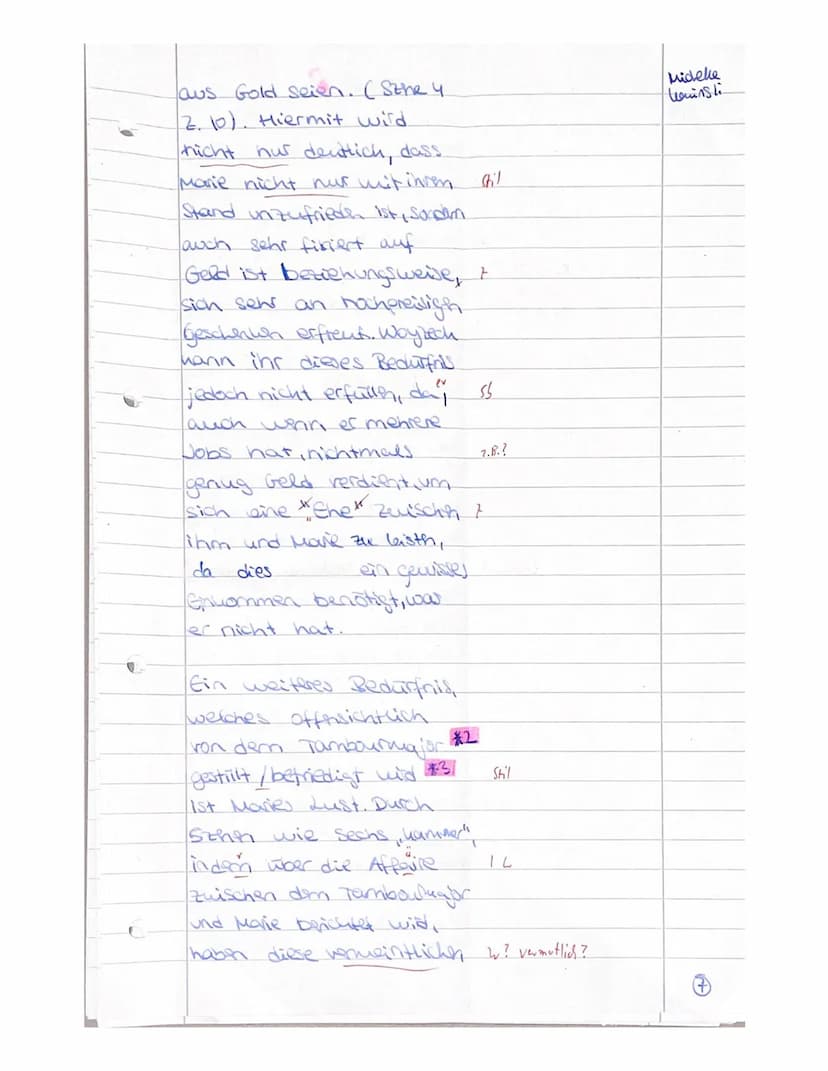 aus Gold seien. (Szene 4
Z. 10). Hiermit wird
nicht nur deutlich, dass
Marie nicht nur mit ihren Stil
Stand unzufrieden ist, sondern
auch sehr fixiert auf
Geld ist beziehungsweise,
sich sehr an hochpreisigen
Geschenken erfreut. Woyzeck
kann ihr dieses Bedürfnis
jedoch nicht erfüllen, da er, Sb
auch wenn er mehrere
Jobs hat, nichtmals z.B.?
genug Geld verdient, um
sich eine "Ehe" zwischen
ihm und Marie zu leisten,
da dies ein gewisses
Einkommen benötigt, was
er nicht hat.
Ein weiteres Bedürfnis,
welches offensichtlich
von dem Tambourmajor *2
gestillt / befriedigt wird *3 Stil
ist Maries Lust. Durch
Szenen wie sechs „Kammer",
indem über die Affaire
zwischen dem Tambourmajor
und Marie berichtet wird,
haben diese vermeintlichen W? vermutlich?
7